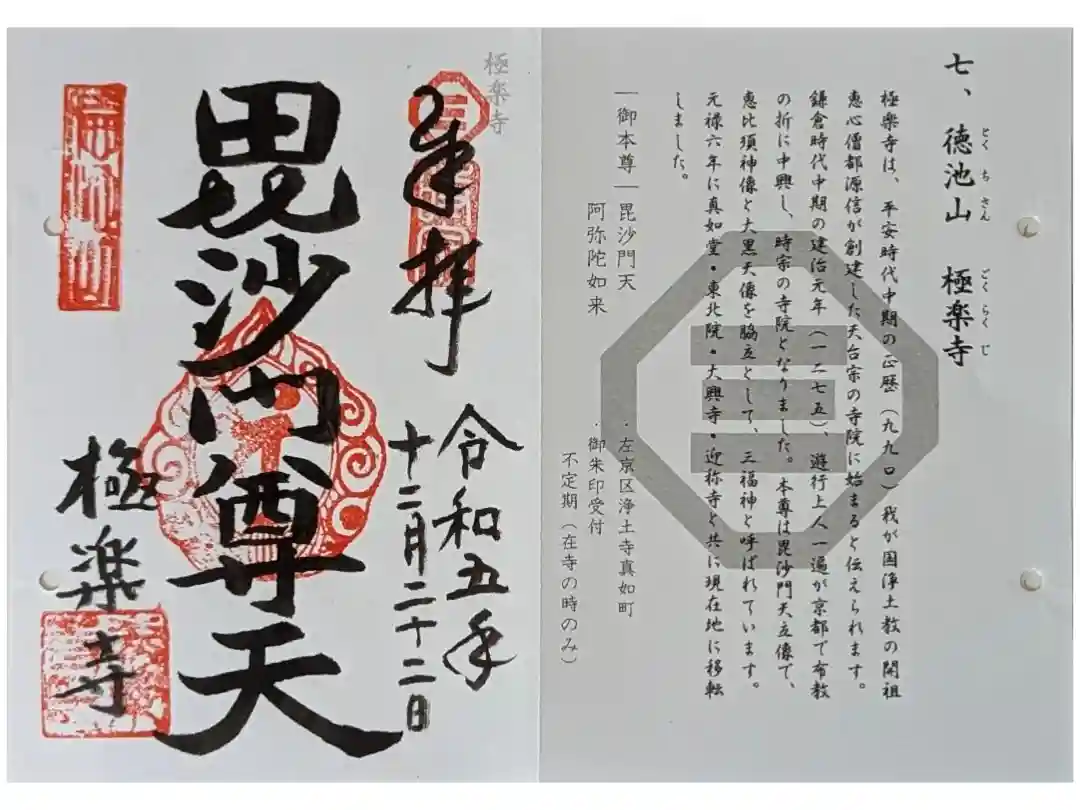 七、 徳池山 極楽寺
とく ち さん ごくらく じ
極楽寺は、平安時代中期の正暦(九九〇)我が国浄土教の開祖
恵心僧都源信が創建した天台宗の寺院に始まると伝えられます。
鎌倉時代中期の建治元年(一二七五)、遊行上人一遍が京都で布教
の折に中興し、時宗の寺院となりました。本尊は毘沙門天立像で、
恵比須神像と大黒天像を脇立として、三福神と呼ばれています。
元禄六年に真如堂・東北院・大興寺・迎称寺と共に現在地に移転
しました。
―御本尊―毘沙門天
阿弥陀如来
・左京区浄土寺真如町
・御朱印受付
不定期(在寺の時のみ)
極楽寺
奉拝
令和五年
十二月二十二日
毘沙門尊天
極楽寺